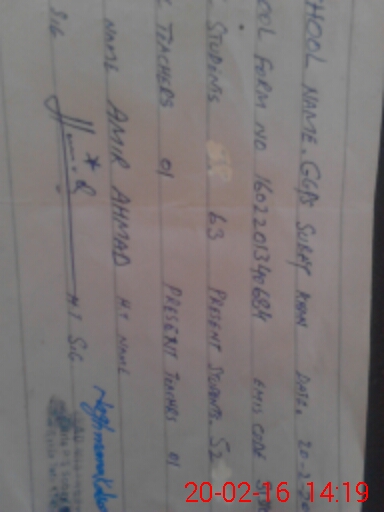 HOOL NAME. GGPS SURAT KHAN DATE. 20-2-
COL FORM NO 16022013490684 EMIS CODE
STUDENTS 63 PRESENT STUDENTS. 52
TEACHERS 01 PRESENT TEACHERS 01
NAME AMIR AHMAD HT NAME
SIG HT SIG
20-02-16 14:19